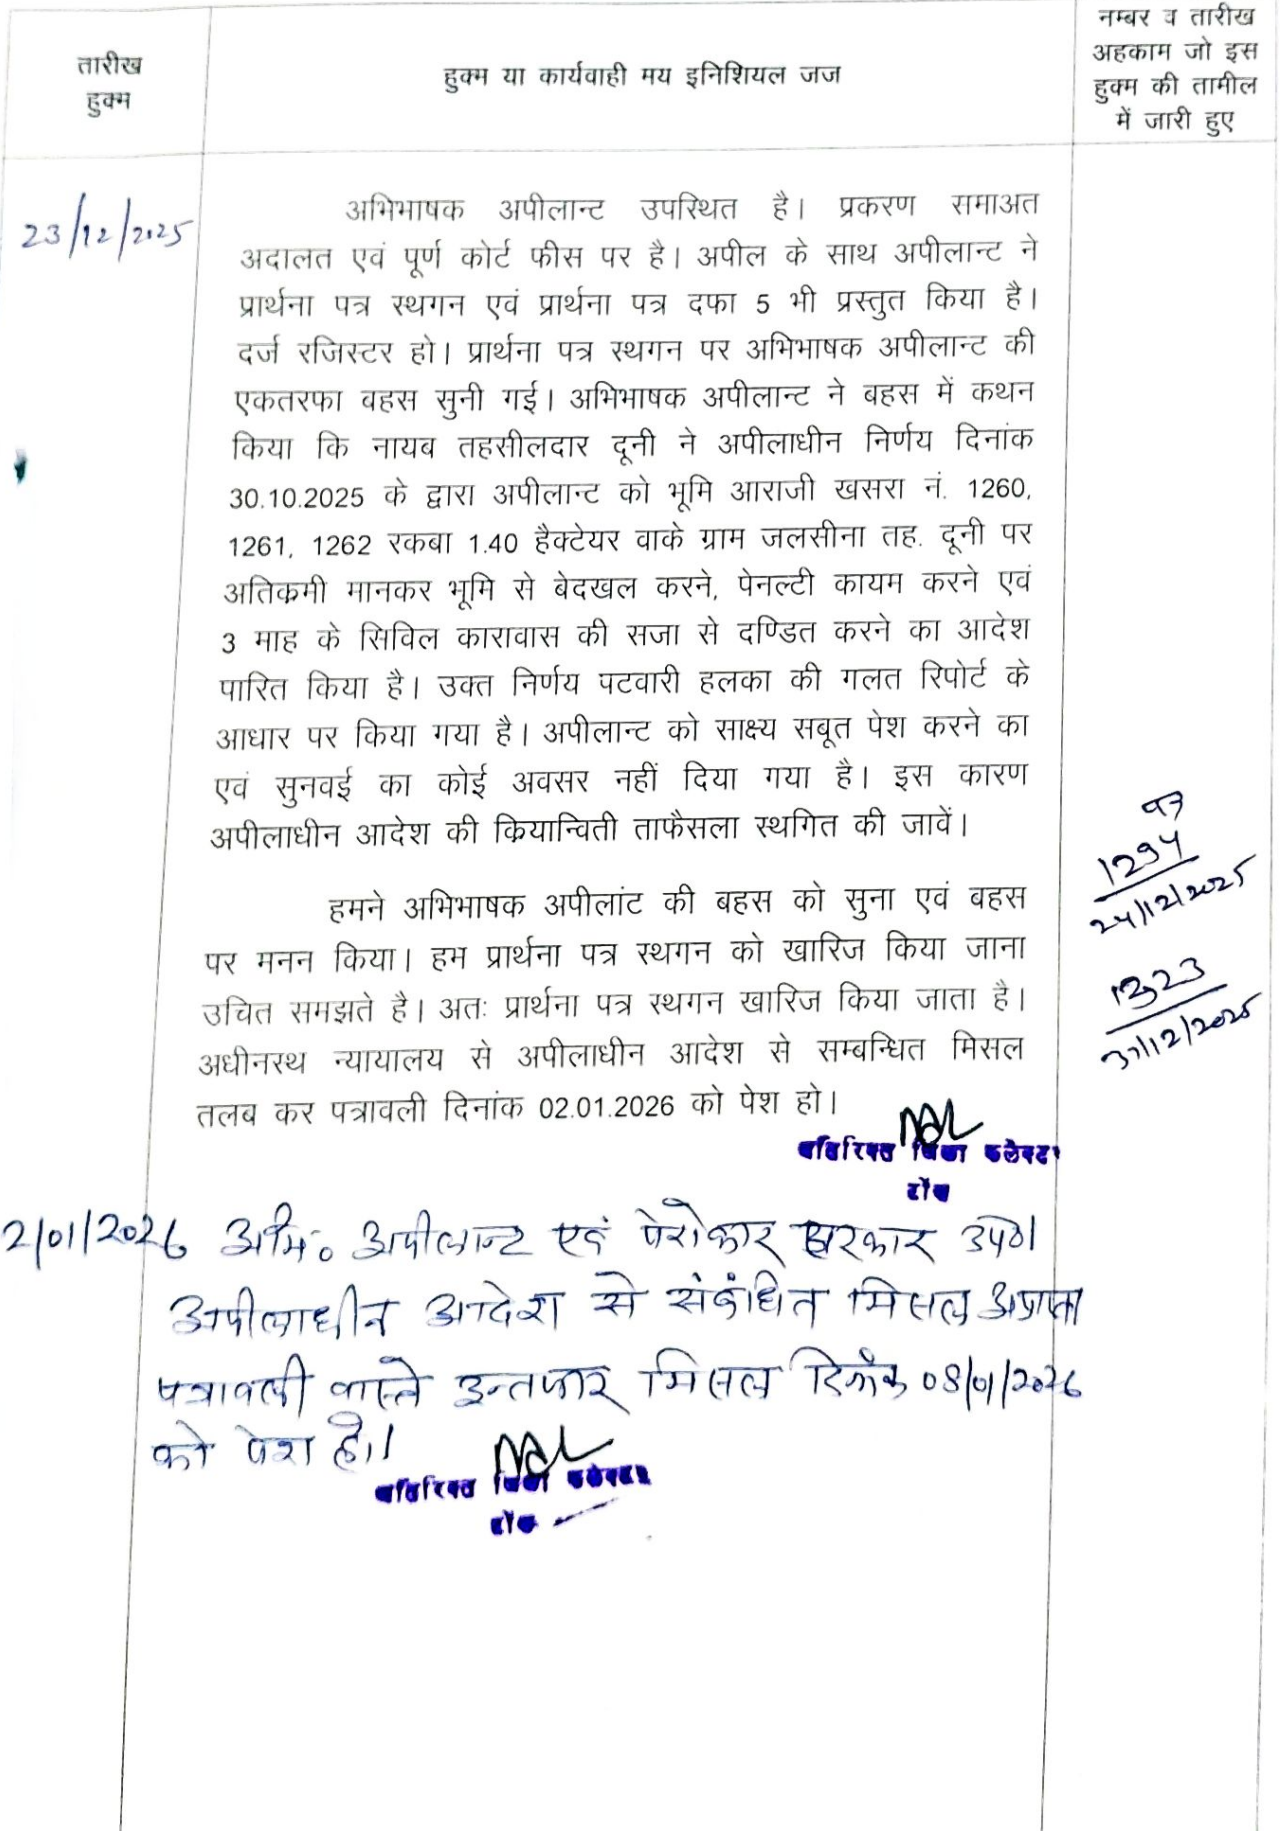 तारीख
हुक्म
हुक्म या कार्यवाही मय इनिशियल जज
नम्बर व तारीख
अहकाम जो इस
हुक्म की तामील
में जारी हुए
23/12/2025
अभिभाषक अपीलान्ट उपस्थित है। प्रकरण समाअत
अदालत एवं पूर्ण कोर्ट फीस पर है। अपील के साथ अपीलान्ट ने
प्रार्थना पत्र स्थगन एवं प्रार्थना पत्र दफा 5 भी प्रस्तुत किया है।
दर्ज रजिस्टर हो। प्रार्थना पत्र स्थगन पर अभिभाषक अपीलान्ट की
एकतरफा वहस सुनी गई। अभिभाषक अपीलान्ट ने बहस में कथन
किया कि नायब तहसीलदार दूनी ने अपीलाधीन निर्णय दिनांक
30.10.2025 के द्वारा अपीलान्ट को भूमि आराजी खसरा नं. 1260,
1261, 1262 रकबा 1.40 हैक्टेयर वाके ग्राम जलसीना तह. दूनी पर
अतिक्रमी मानकर भूमि से बेदखल करने, पेनल्टी कायम करने एवं
3 माह के सिविल कारावास की सजा से दण्डित करने का आदेश
पारित किया है। उक्त निर्णय पटवारी हलका की गलत रिपोर्ट के
आधार पर किया गया है। अपीलान्ट को साक्ष्य सबूत पेश करने का
एवं सुनवई का कोई अवसर नहीं दिया गया है। इस कारण
अपीलाधीन आदेश की क्रियान्विती ताफैसला स्थगित की जावें।
97
1294
24/12/2025
हमने अभिभाषक अपीलांट की बहस को सुना एवं बहस
पर मनन किया। हम प्रार्थना पत्र स्थगन को खारिज किया जाना
उचित समझते है। अतः प्रार्थना पत्र स्थगन खारिज किया जाता है।
अधीनस्थ न्यायालय से अपीलाधीन आदेश से सम्बन्धित मिसल
तलब कर पत्रावली दिनांक 02.01.2026 को पेश हो।
1323
31/12/2025
अतिरिक्त जिला कलेक्टर
टोंक
2/01/2026 अभि० अपीलान्ट एवं पेरोकार सरकार उप०।
अपीलाधीन आदेश से संबंधित मिसल अप्राप्त
पत्रावली वास्ते इन्तजार मिसल दिनांक 08/01/2026
को पेश हो।
अतिरिक्त जिला कलेक्टर
टोंक